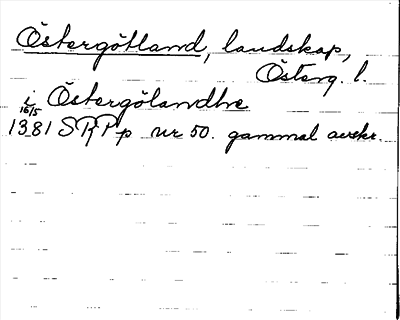 Östergötland, landskap,
Österg. l.
i Östergölandhe
16/5
1381 SRPp nr 50. gammal avskr.